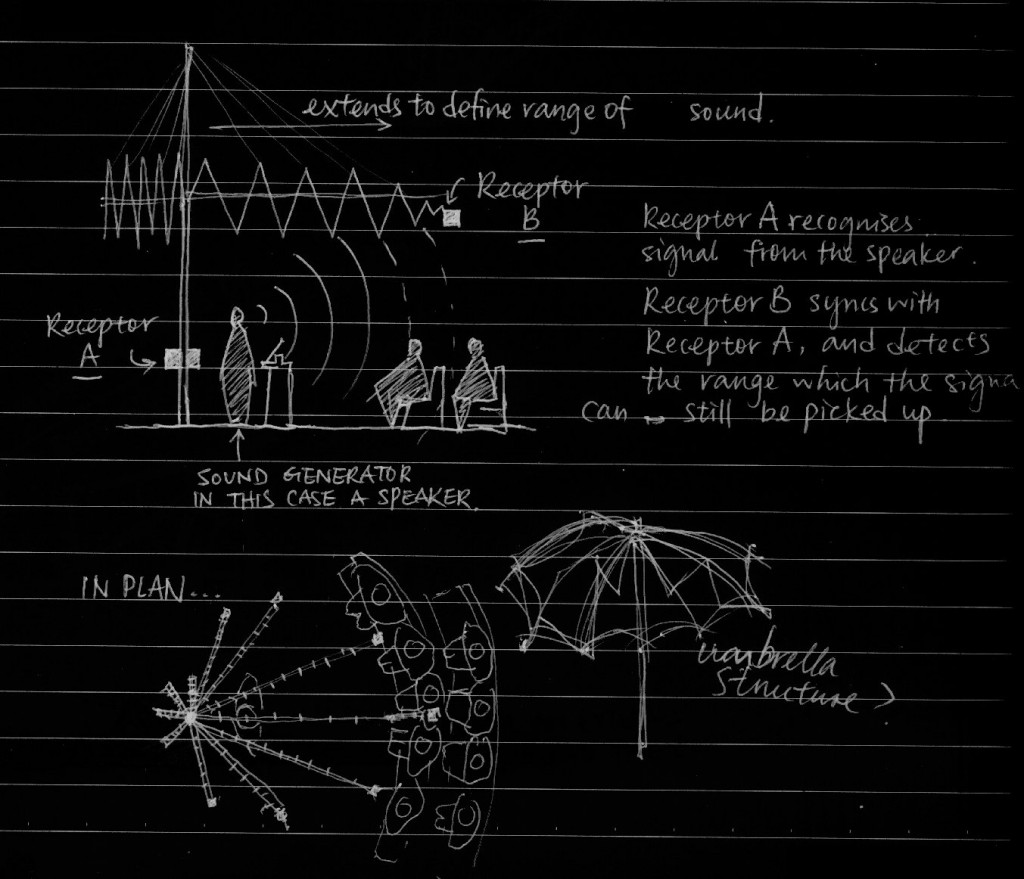 extends to define range of sound.
Receptor
B
Receptor A recognises
signal from the speaker.
Receptor B syncs with
Receptor A, and detects
the range which the signa
can still be picked up.
Receptor
A
SOUND GENERATOR
IN THIS CASE A SPEAKER.
IN PLAN...
umbrella
structure